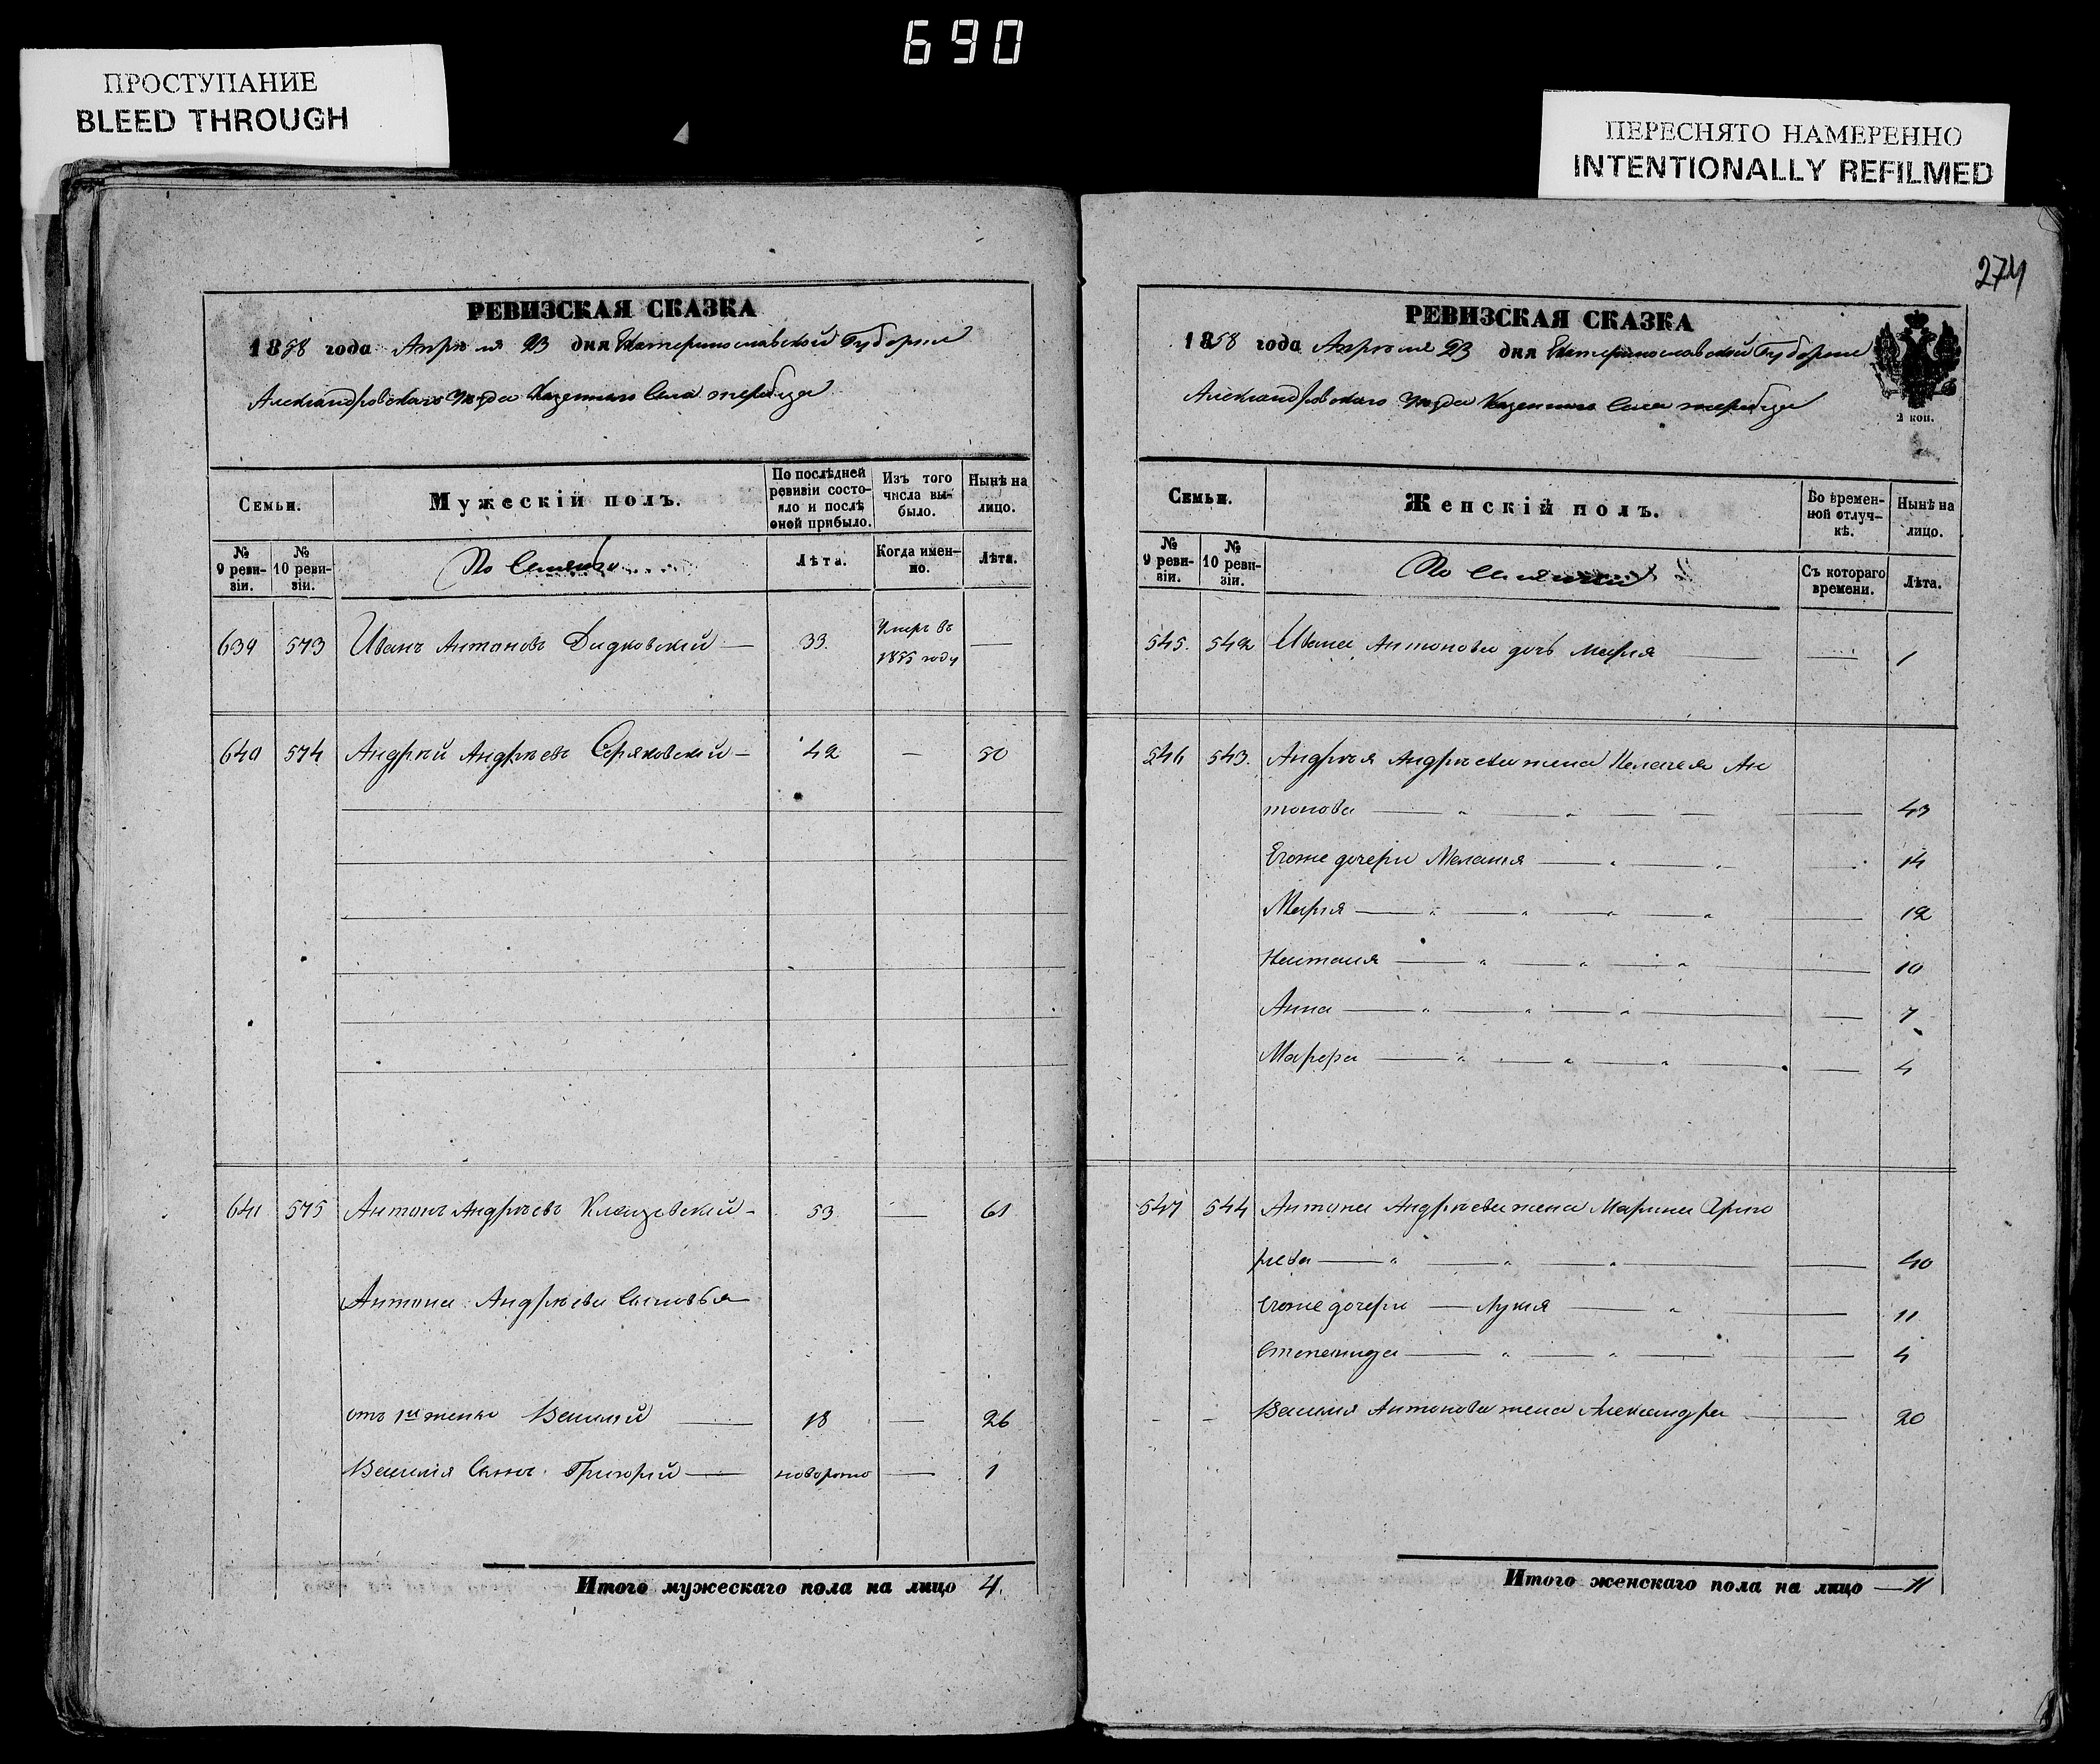 690
ПРОСТУПАНИЕ
BLEED THROUGH
ПЕРЕСНЯТО НАМЕРЕННО
INTENTIONALLY REFILMED
РЕВИЗСКАЯ СКАЗКА
1858 года Апрѣля 23 дня Екатеринославской Губернiи
Александровскаго Уѣзда Казеннаго Села Жеребца
Семьи.
Мужескій полъ.
По послѣдней ревизіи состояло и послѣ оной прибыло.
Изъ того числа выбыло.
Нынѣ на лицо.
№ 9 ревизіи.
№ 10 ревизіи.
Лѣта.
Когда именно.
Лѣта.
639 573 Иванъ Антоновъ Дидковскій — 33. Умеръ въ 1855 году —
640 574 Андрѣй Андрѣевъ Серяковскій — 42 — 50
641 575 Антонъ Андрѣевъ — 53 — 61
Антона Андрѣева Сыновья
отъ 1й жены Василій — 18 — 26
Василія Сынъ Григорій — новорожд — 1
Итого мужескаго пола на лицо 4.
274
РЕВИЗСКАЯ СКАЗКА
1858 года Апрѣля 23 дня Екатеринославской Губернiи
Александровскаго Уѣзда Казеннаго Села Жеребца
2 коп.
Семьи.
Женскій полъ.
Во временной отлучкѣ.
Нынѣ на лицо.
№ 9 ревизіи.
№ 10 ревизіи.
Съ котораго времени.
Лѣта.
545. 542 Ивана Антонова дочь Марія — — 1
546 543. Андрѣя Андрѣева жена Пелагея Ан
тонова — — 43
Егоже дочери Меланія — — 14
Марія — — 12
Наталія — — 10
Анна — — 7
Марфа — — 4
547 544 Антона Андрѣева жена Марина Григо
рьева — — 40
Егоже дочери — Лукія — — 11
Степанида — — 4
Василія Антонова жена Александра — 20
Итого женскаго пола на лицо — 11